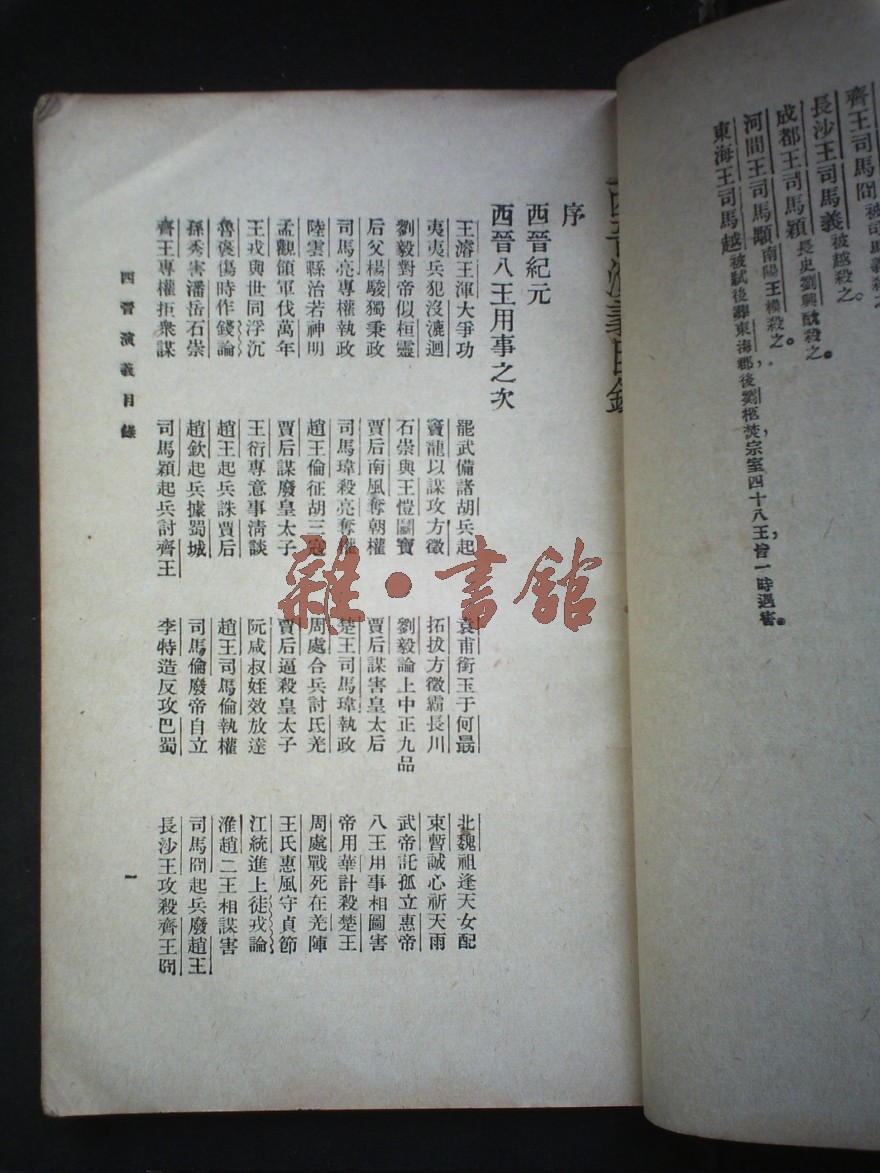 齊王司馬冏被司馬義殺之
長沙王司馬義被越殺之。
成都王司馬穎長史劉輿酖殺之。
河間王司馬顒南陽王模殺之。
東海王司馬越被弑後葬東海郡，後劉柩焚宗室四十八王，皆一時遇害。
西晉演義目錄
序
西晉紀元
西晉八王用事之次
王濬王渾大爭功 罷武備諸胡兵起 袁甫衒玉于何勗 北魏祖逢天女配
夷夷兵犯沒漉迴 竇龍以謀攻方徵 拓拔方徵霸長川 束暫誠心祈天雨
劉毅對帝似桓靈 石崇與王愷鬭寶 劉毅論上中正九品 武帝託孤立惠帝
后父楊駿獨秉政 賈后南風奪朝權 賈后謀害皇太后 八王用事相圖害
司馬亮專權執政 司馬瑋殺亮奪權 楚王司馬瑋執政 帝用華計殺楚王
陸雲縣治若神明 趙王倫征胡三寇 周處合兵討氐羌 周處戰死在羌陣
孟觀領軍伐萬年 賈后謀廢皇太子 賈后逼殺皇太子 王氏惠風守貞節
王戎與世同浮沉 王衍專意事清談 阮咸叔姪效放達 江統進上徒戎論
魯褒傷時作錢論 趙王起兵誅賈后 趙王司馬倫執權 淮趙二王相謀害
孫秀害潘岳石崇 趙欽起兵據蜀城 司馬倫廢帝自立 司馬冏起兵廢趙王
齊王專權拒衆謀 司馬穎起兵討齊王 李特造反攻巴蜀 長沙王攻殺齊王冏
西晉演義目錄
一
雜·書館